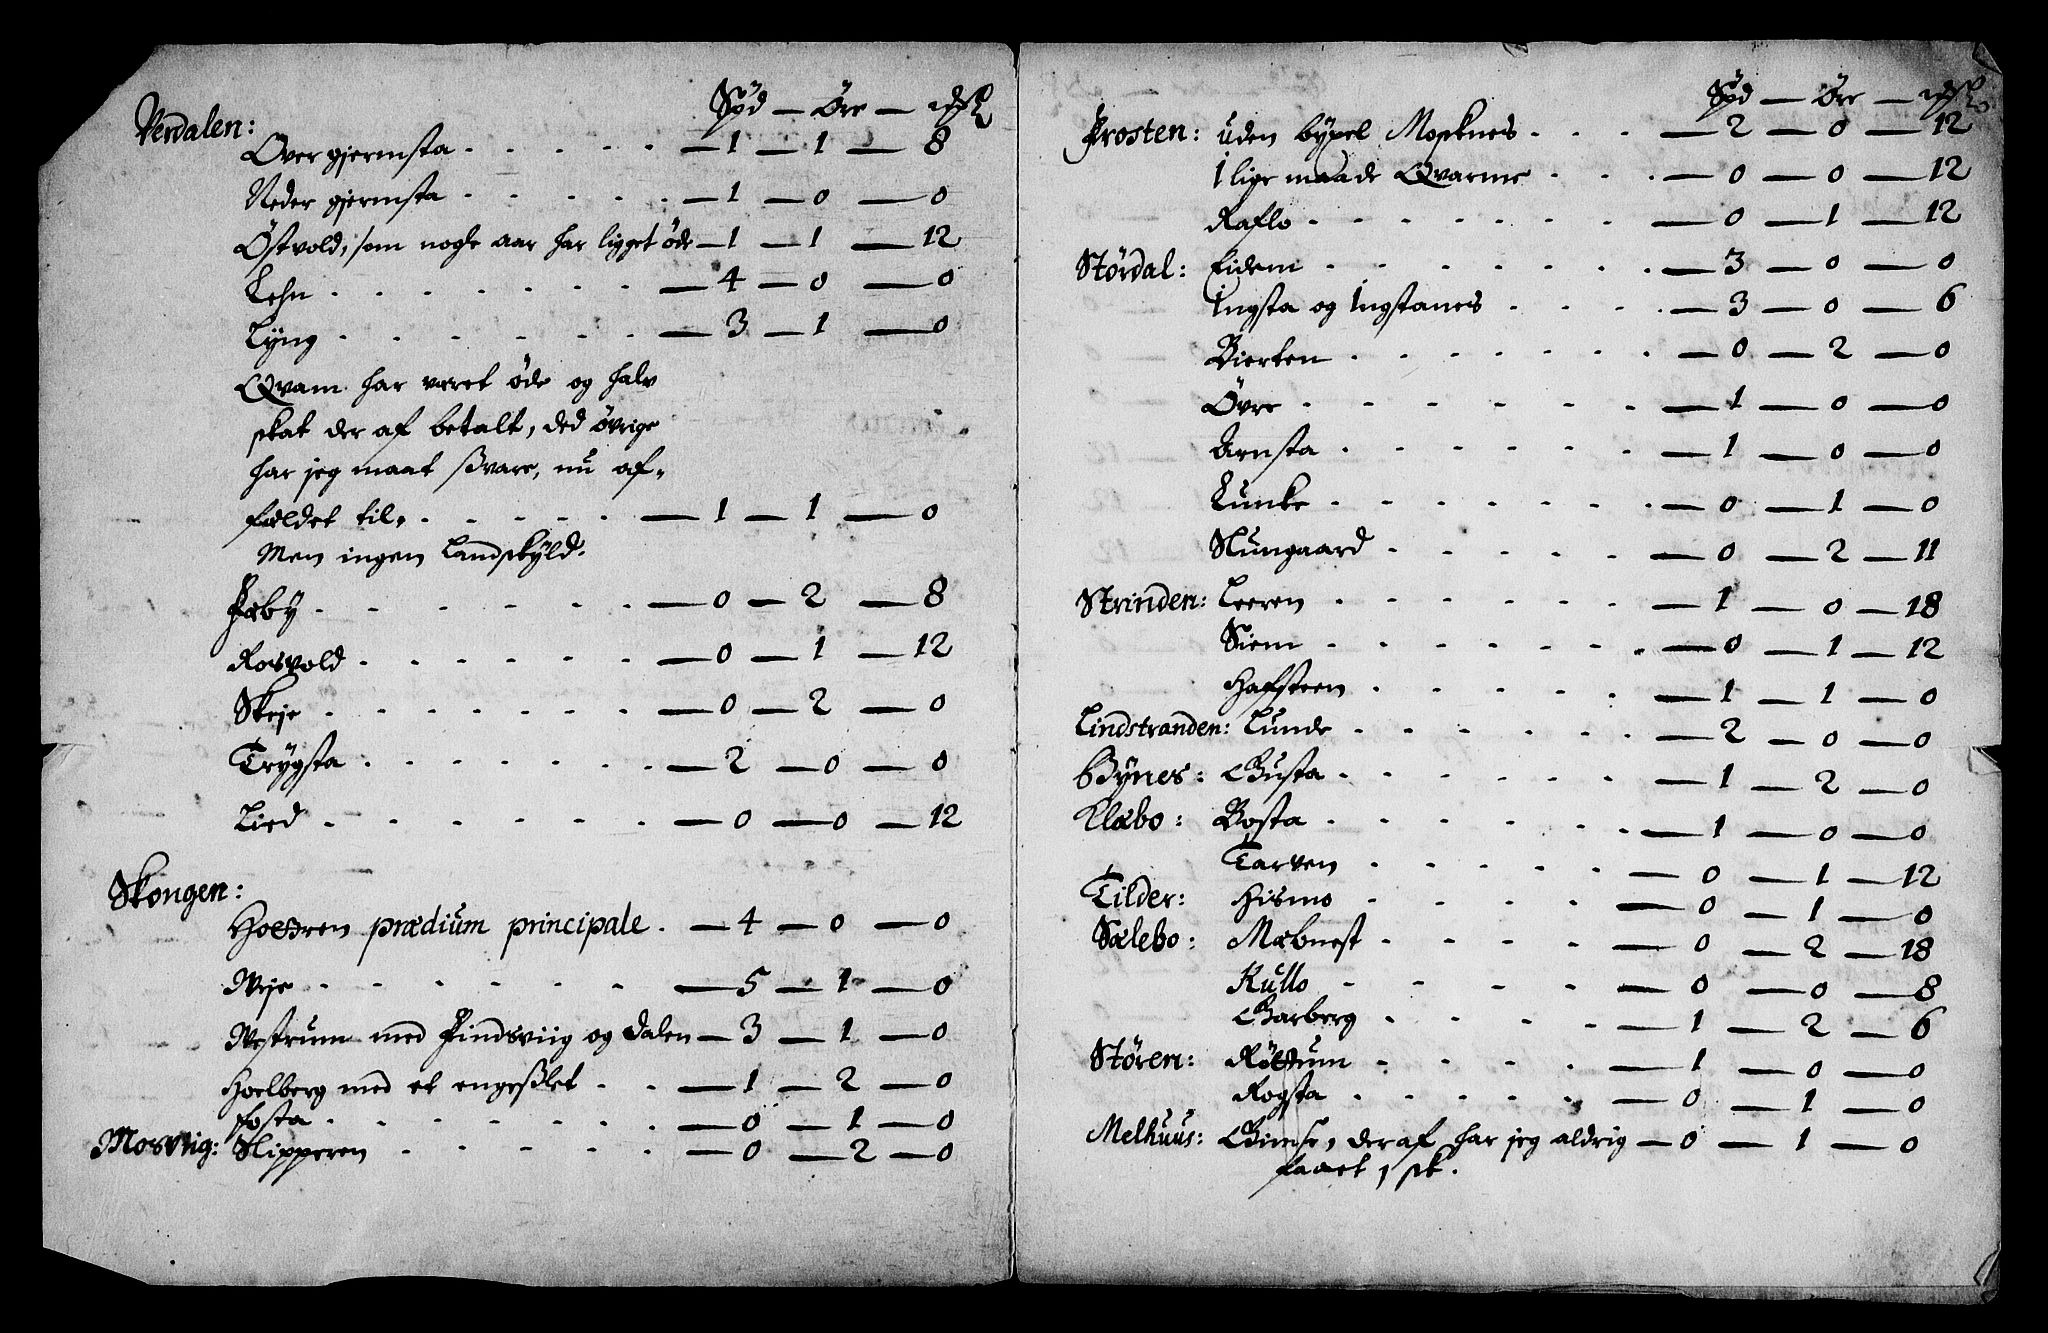 Spd — Öre — mſk
Verdalen:
Over gjermsta . . . . . — 1 — 1 — 8
Neder gjermsta . . . . . — 1 — 0 — 0
Östvold, som nogle aar har ligget öde — 1 — 1 — 12
Lehn . . . . . . . — 4 — 0 — 0
Lyng . . . . . . . — 3 — 1 — 0
Qvam har været öde og halv
skat der af betalt, ded övrige
har jeg maat svare, nu af-
fældet til . . . . . — 1 — 1 — 0
Men ingen Landskÿld.
Fæby . . . . . . . — 0 — 2 — 8
Rosvold . . . . . . — 0 — 1 — 12
Skeje . . . . . . . — 0 — 2 — 0
Trÿgsta . . . . . . . — 2 — 0 — 0
Lied . . . . . . . — 0 — 0 — 12
Skongen:
Holtren prædium principale . — 4 — 0 — 0
Weje . . . . . . — 5 — 1 — 0
Westrum med Findsviig og Dalen — 3 — 1 — 0
Hoelberg med et engeslet . . — 1 — 2 — 0
Fosta . . . . . . — 0 — 1 — 0
Mosviig: Slipperen . . . . . — 0 — 2 — 0
Spd — Öre — mſk
Frosten: uden bÿxel Mosknes . . . — 2 — 0 — 12
I lige maade Qvarme . . . — 0 — 0 — 12
Raflo . . . . . . . — 0 — 1 — 12
Stördal: Eidem . . . . . . — 3 — 0 — 0
Ingsta og Ingstanes . . . . — 3 — 0 — 6
Bierken . . . . . . — 0 — 2 — 0
Övre . . . . . . — 1 — 0 — 0
Arnsta . . . . . . — 1 — 0 — 0
Lunke . . . . . . — 0 — 1 — 0
Slungaard . . . . . — 0 — 2 — 11
Strinden: Leeren . . . . . . — 1 — 0 — 18
Siem . . . . . . — 0 — 1 — 12
Hafsteen . . . . . — 1 — 1 — 0
Lindstranden: Lunde . . . . . . — 2 — 0 — 0
Bÿnes: Gusta . . . . . . — 1 — 2 — 0
Klæbo: Bosta . . . . . . — 1 — 0 — 0
Tarven . . . . . — 0 — 1 — 12
Tilder: Hismo . . . . . — 0 — 1 — 0
Sælebo: Mæbnest . . . . — 0 — 2 — 18
Kullo . . . . — 0 — 0 — 8
Garberg . . . . — 1 — 2 — 6
Stören: Röttum . . . . — 1 — 0 — 0
Rogsta . . . . . — 0 — 1 — 0
Melhuus: Gimse, deraf har jeg aldrig — 0 — 1 — 0
faaet 1 sk.